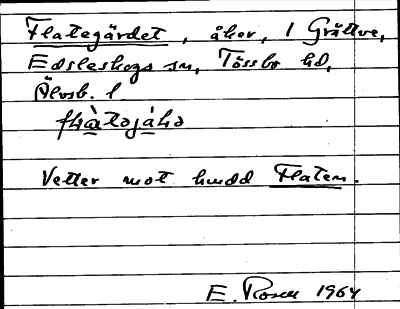 Flategärdet, åker, 1 Grättve,
Edsleskogs sn, Tössbo hd,
Älvsb. l
Vetter mot hmdd Flaten.
E. Rosell 1964